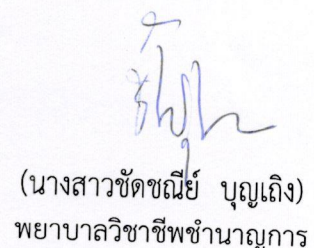 (นางสาวชัดชณีย์ บุญเถิง)
พยาบาลวิชาชีพชำนาญการ